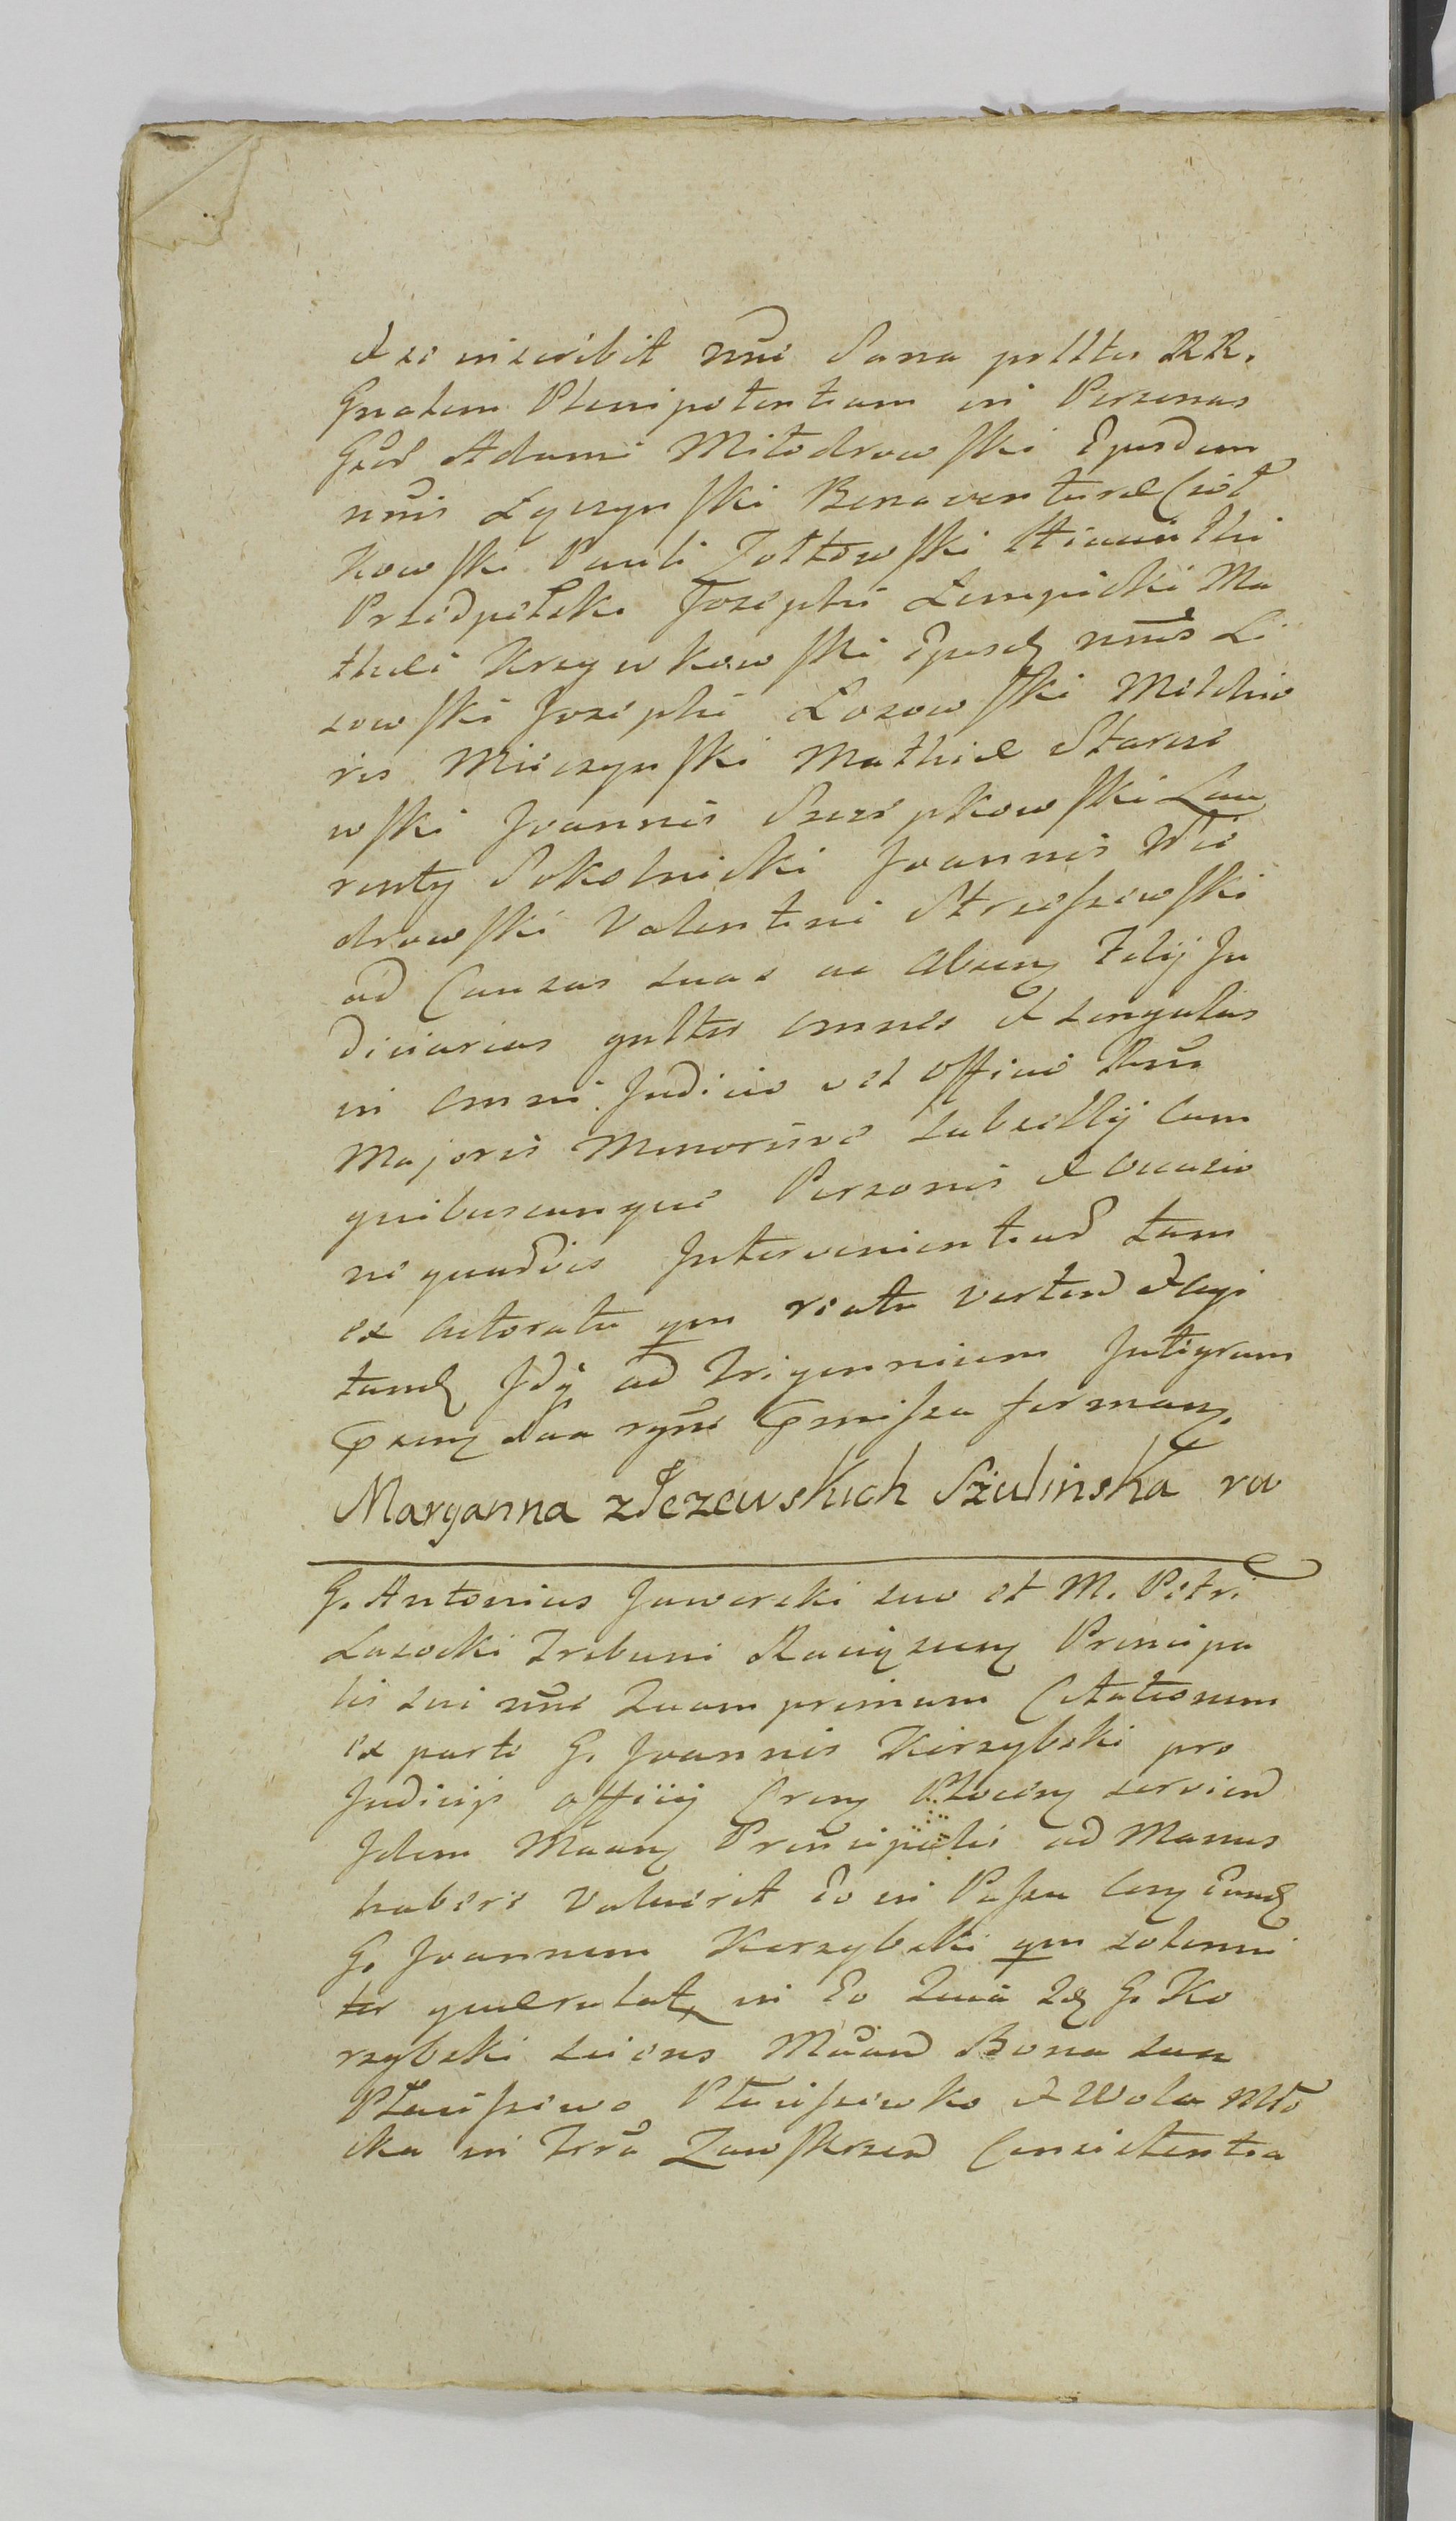 et se inscribit nne Sana potltes RR.
Gnalem Plenipotentiam in Personas
Gsor Adami Miłodrowski Ejusdem
nnis Łęczynski Bonaventuræ Ciot
kowski Pauli Zołtowski Hiacinthi
Przedpełski Josephi Lempicki Ma
thæi Krzywkowski Ejusd nnis Li
sowski Josephi Łosowski Melchio
ris Mieczynski Mathiæ Starcze
wski Joannis Szczepkowski Lau
renty Sokolnicki Joannis Mio
drowski Valentini Strzeszewski
ad Causas suas ac Abunq Telij Ju
diciarias gnltes omnes et singulas
in omni Judicio vel Officio Rnu
Majoris Minorisve subsellij cum
quibuscunque Personis et occasio
ne quadvis Intervenientiad tam
ex actoratu qm reatu vertend et agi
tand Idq ad Trigennium Integrum
Marÿanna z Jezewskich Sziulinska
G. Antonius Jaworski suo et M. Petri
Lasocki Tribuni Raciązen Principa
lis sui nne Quam primum Citationem
ex parte G. Joannis Kierzybski pro
Judicijs officij Cren Plocen serviend
Idem Maan Principalis ad Manus
habere Valuerit Eo in Passu
G. Joannem Kierzybski qm solenni
ter quærulat, in Eo Quia G. Ko
rzybski sciens Bona sua
Płaciszewo Płaciszewko et Wola Młó
cka in Trra Zawskrzen Consistentia